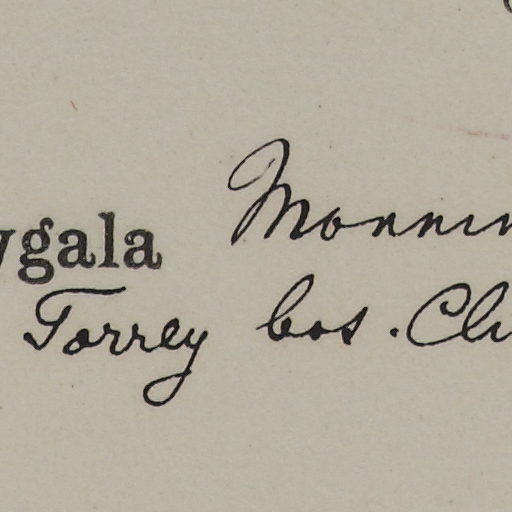 ygala Monnin
Torrey bos. Cli